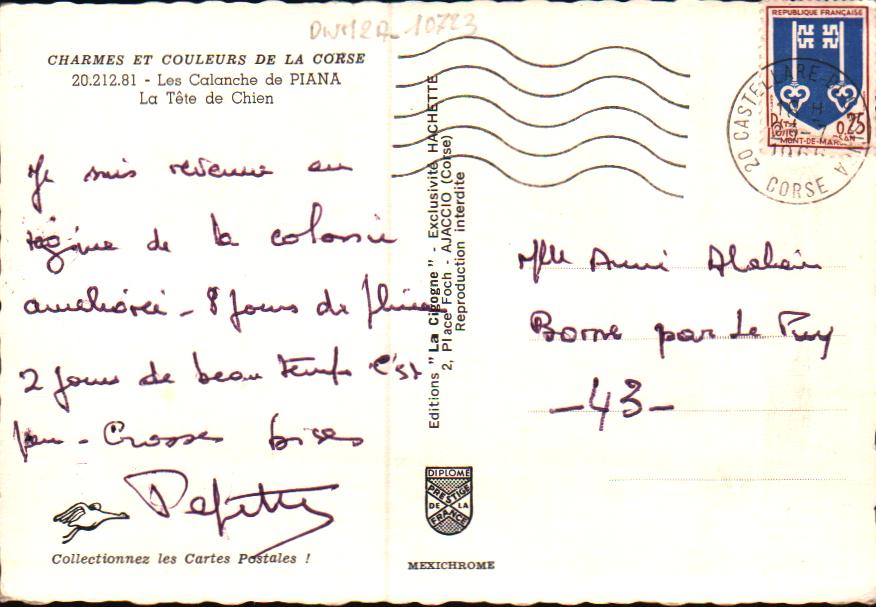 DW12A-10723
CHARMES ET COULEURS DE LA CORSE
20.212.81 - Les Calanche de PIANA
La Tête de Chien
Je suis revenue au
régime de la colonie
amélioré - 8 jours de pluie
2 jours de beau temps c'est
peu - Grosses bises
Collectionnez les Cartes Postales !
Editions "La Cigogne" - Exclusivité HACHETTE
2, Place Foch - AJACCIO (Corse)
Reproduction interdite
DIPLOME
PRESTIGE
DE LA
FRANCE
MEXICHROME
REPUBLIQUE FRANÇAISE
0,25
MONT-DE-MARSAN
20 CASTELLARE
CORSE
Mlle Annie
Borne par Le Puy
-43-